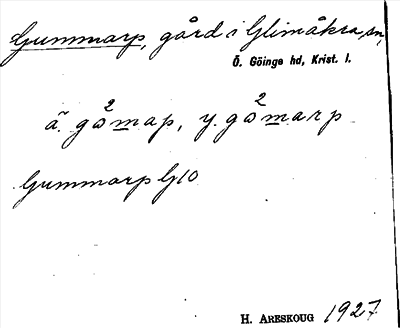 Gummarp, gård i Glimåkra sn,
Ö. Göinge hd, Krist. l.
ä. gò²map, y. gò²marp
Gummarp G10
H. ARESKOUG 1927